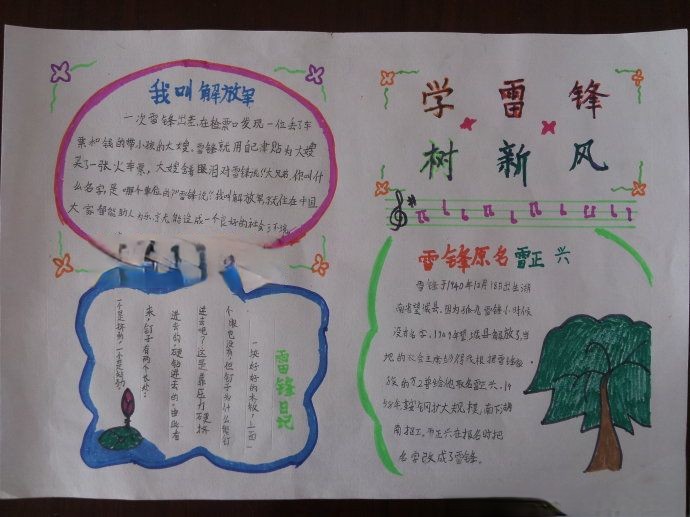 我叫解放军
一次雷锋出差,在检票口发现一位丢了车
票和钱的带小孩的大嫂,雷锋就用自己津贴为大嫂
买了一张火车票,大嫂含着眼泪对雷锋说:"大兄弟,你叫什
么名字,是哪个单位的?"雷锋说:"我叫解放军,就住在中国
大家都能助人为乐,才能造成一个良好的社会环境。
雷锋日记
一块好好的木板,上面一
个眼也没有,但钉子为什么能钉
进去呢?这是靠压力硬挤
进去的,硬钻进去的。由此看
来,钉子有两个长处:
一个是挤劲,一个是钻劲
学雷锋
树新风
雷锋原名雷正兴
雷锋于1940年12月18日出生湖
南省望城县,因为孤儿雷锋小时候
没有名字,1949年望城县解放了,当
地的
给他取名正兴,19
58年鞍钢扩大规模,南下湖
南招工,而正兴在报名时把
名字改成了雷锋。